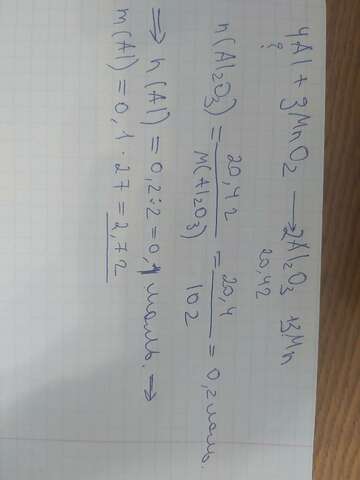 4Al + 3MnO₂ → 2Al₂O₃ + 3Mn
? 20,4г
n(Al₂O₃) = 20,4г / M(Al₂O₃) = 20,4 / 102 = 0,2 моль.
⇒ n(Al) = 0,2 : 2 = 0,1 моль. ⇒
m(Al) = 0,1 · 27 = 2,7г